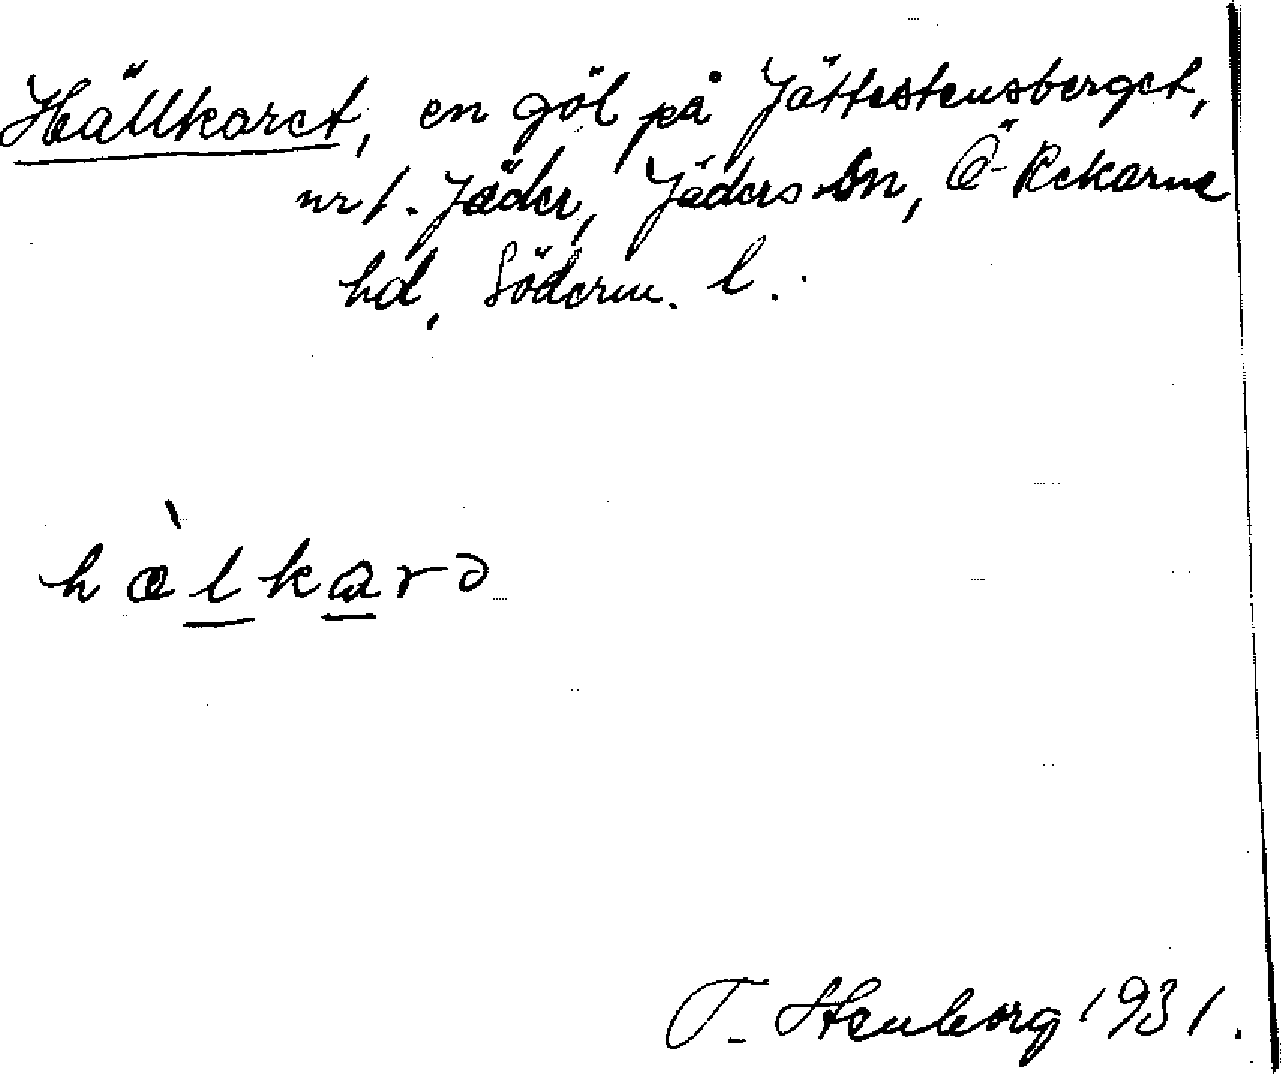 Hällkaret, en göl på Jättestensberget,
nr 1. Jäder, Jäders sn, Ö-Rekarne
hd, Söderm. l.
hæ̀lkarə
T. Stenborg 1931.